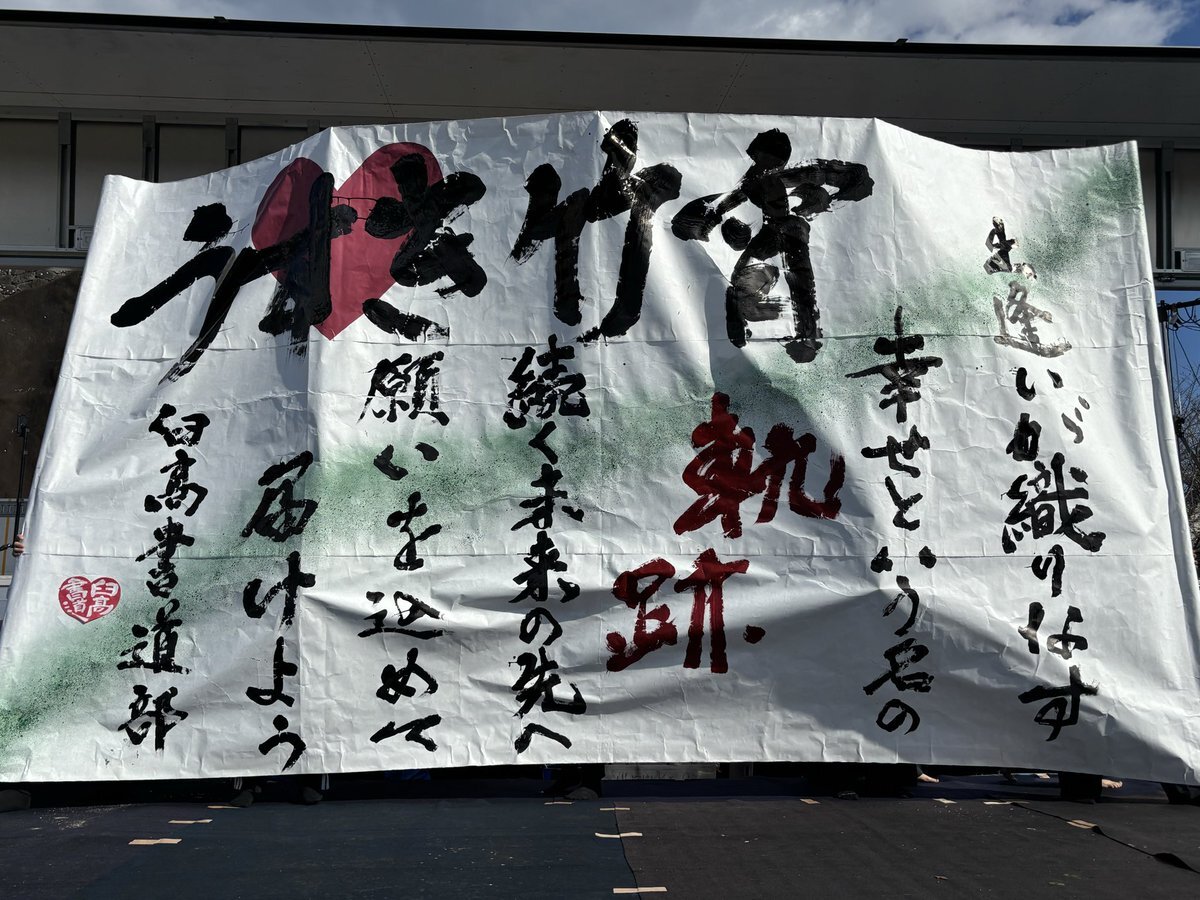 うすき竹宵
出逢いが織りなす
幸せという名の
軌跡
続く未来の先へ
願いを込めて
届けよう
臼高書道部
臼高
書道